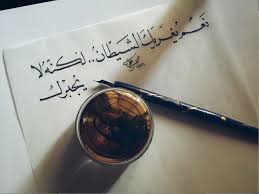 نعم يغريك الشيطان.. لكنه لا
يجبرك